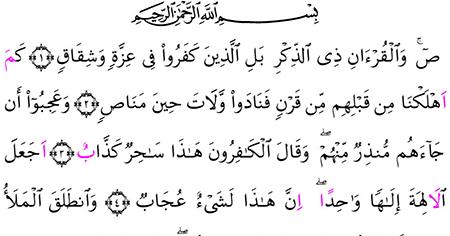 بِسْمِ اللَّهِ الرَّحْمَٰنِ الرَّحِيمِ
صٓ ۚ وَٱلْقُرْءَانِ ذِى ٱلذِّكْرِ بَلِ ٱلَّذِينَ كَفَرُوا۟ فِى عِزَّةٍ وَشِقَاقٍ ﴿١﴾ كَمَ
اَهْلَكْنَا مِن قَبْلِهِم مِّن قَرْنٍ فَنَادَوا۟ وَّلَاتَ حِينَ مَنَاصٍ ﴿٢﴾ وَعَجِبُوٓا۟ أَن
جَآءَهُم مُّنذِرٌ مِّنْهُمْ ۖ وَقَالَ ٱلْكَـٰفِرُونَ هَـٰذَا سَـٰحِرٌ كَذَّابٌ ﴿٣﴾ اَجَعَلَ
ٱلَالِهَةَ إِلَـٰهًا وَٰحِدًا ۖ اِنَّ هَـٰذَا لَشَىْءٌ عُجَابٌ ﴿٤﴾ وَٱنطَلَقَ ٱلْمَلَأُ